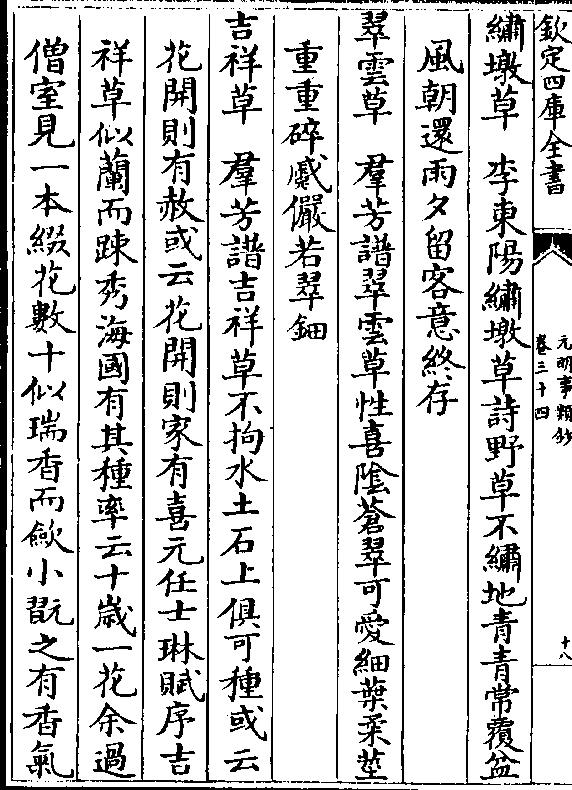 欽定四庫全書
元明事類鈔
卷三十四
十八
繡墩草　李東陽繡墩草詩野草不繡地青青常覆盆
風朝還雨夕留客意終存
翠雲草　羣芳譜翠雲草性喜陰蒼翠可愛細葉柔莖
重重碎蹙儼若翠鈿
吉祥草　羣芳譜吉祥草不拘水土石上俱可種或云
花開則有赦或云花開則家有喜元任士琳賦序吉
祥草似蘭而踈秀海國有其種率云十歲一花余過
僧室見一本綴花數十似瑞香而歛小翫之有香氣